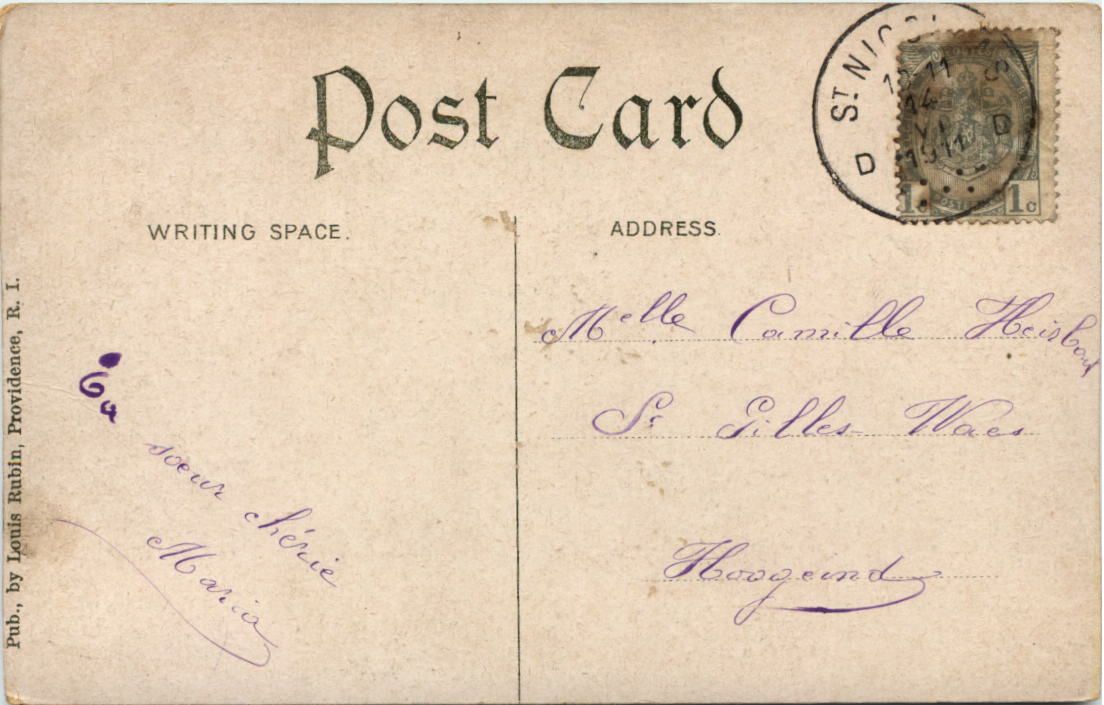 Post Card
WRITING SPACE.
ADDRESS.
ST NICOL S
11
14
1911
D D
1c 1c
Melle Camille Heisbout
St Gilles Waes
Hoogeind
Ta
soeur chérie
Maria
Pub., by Louis Rubin, Providence, R. I.